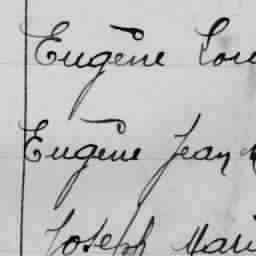 Eugène Lou
Eugène Jean
Joseph Mari